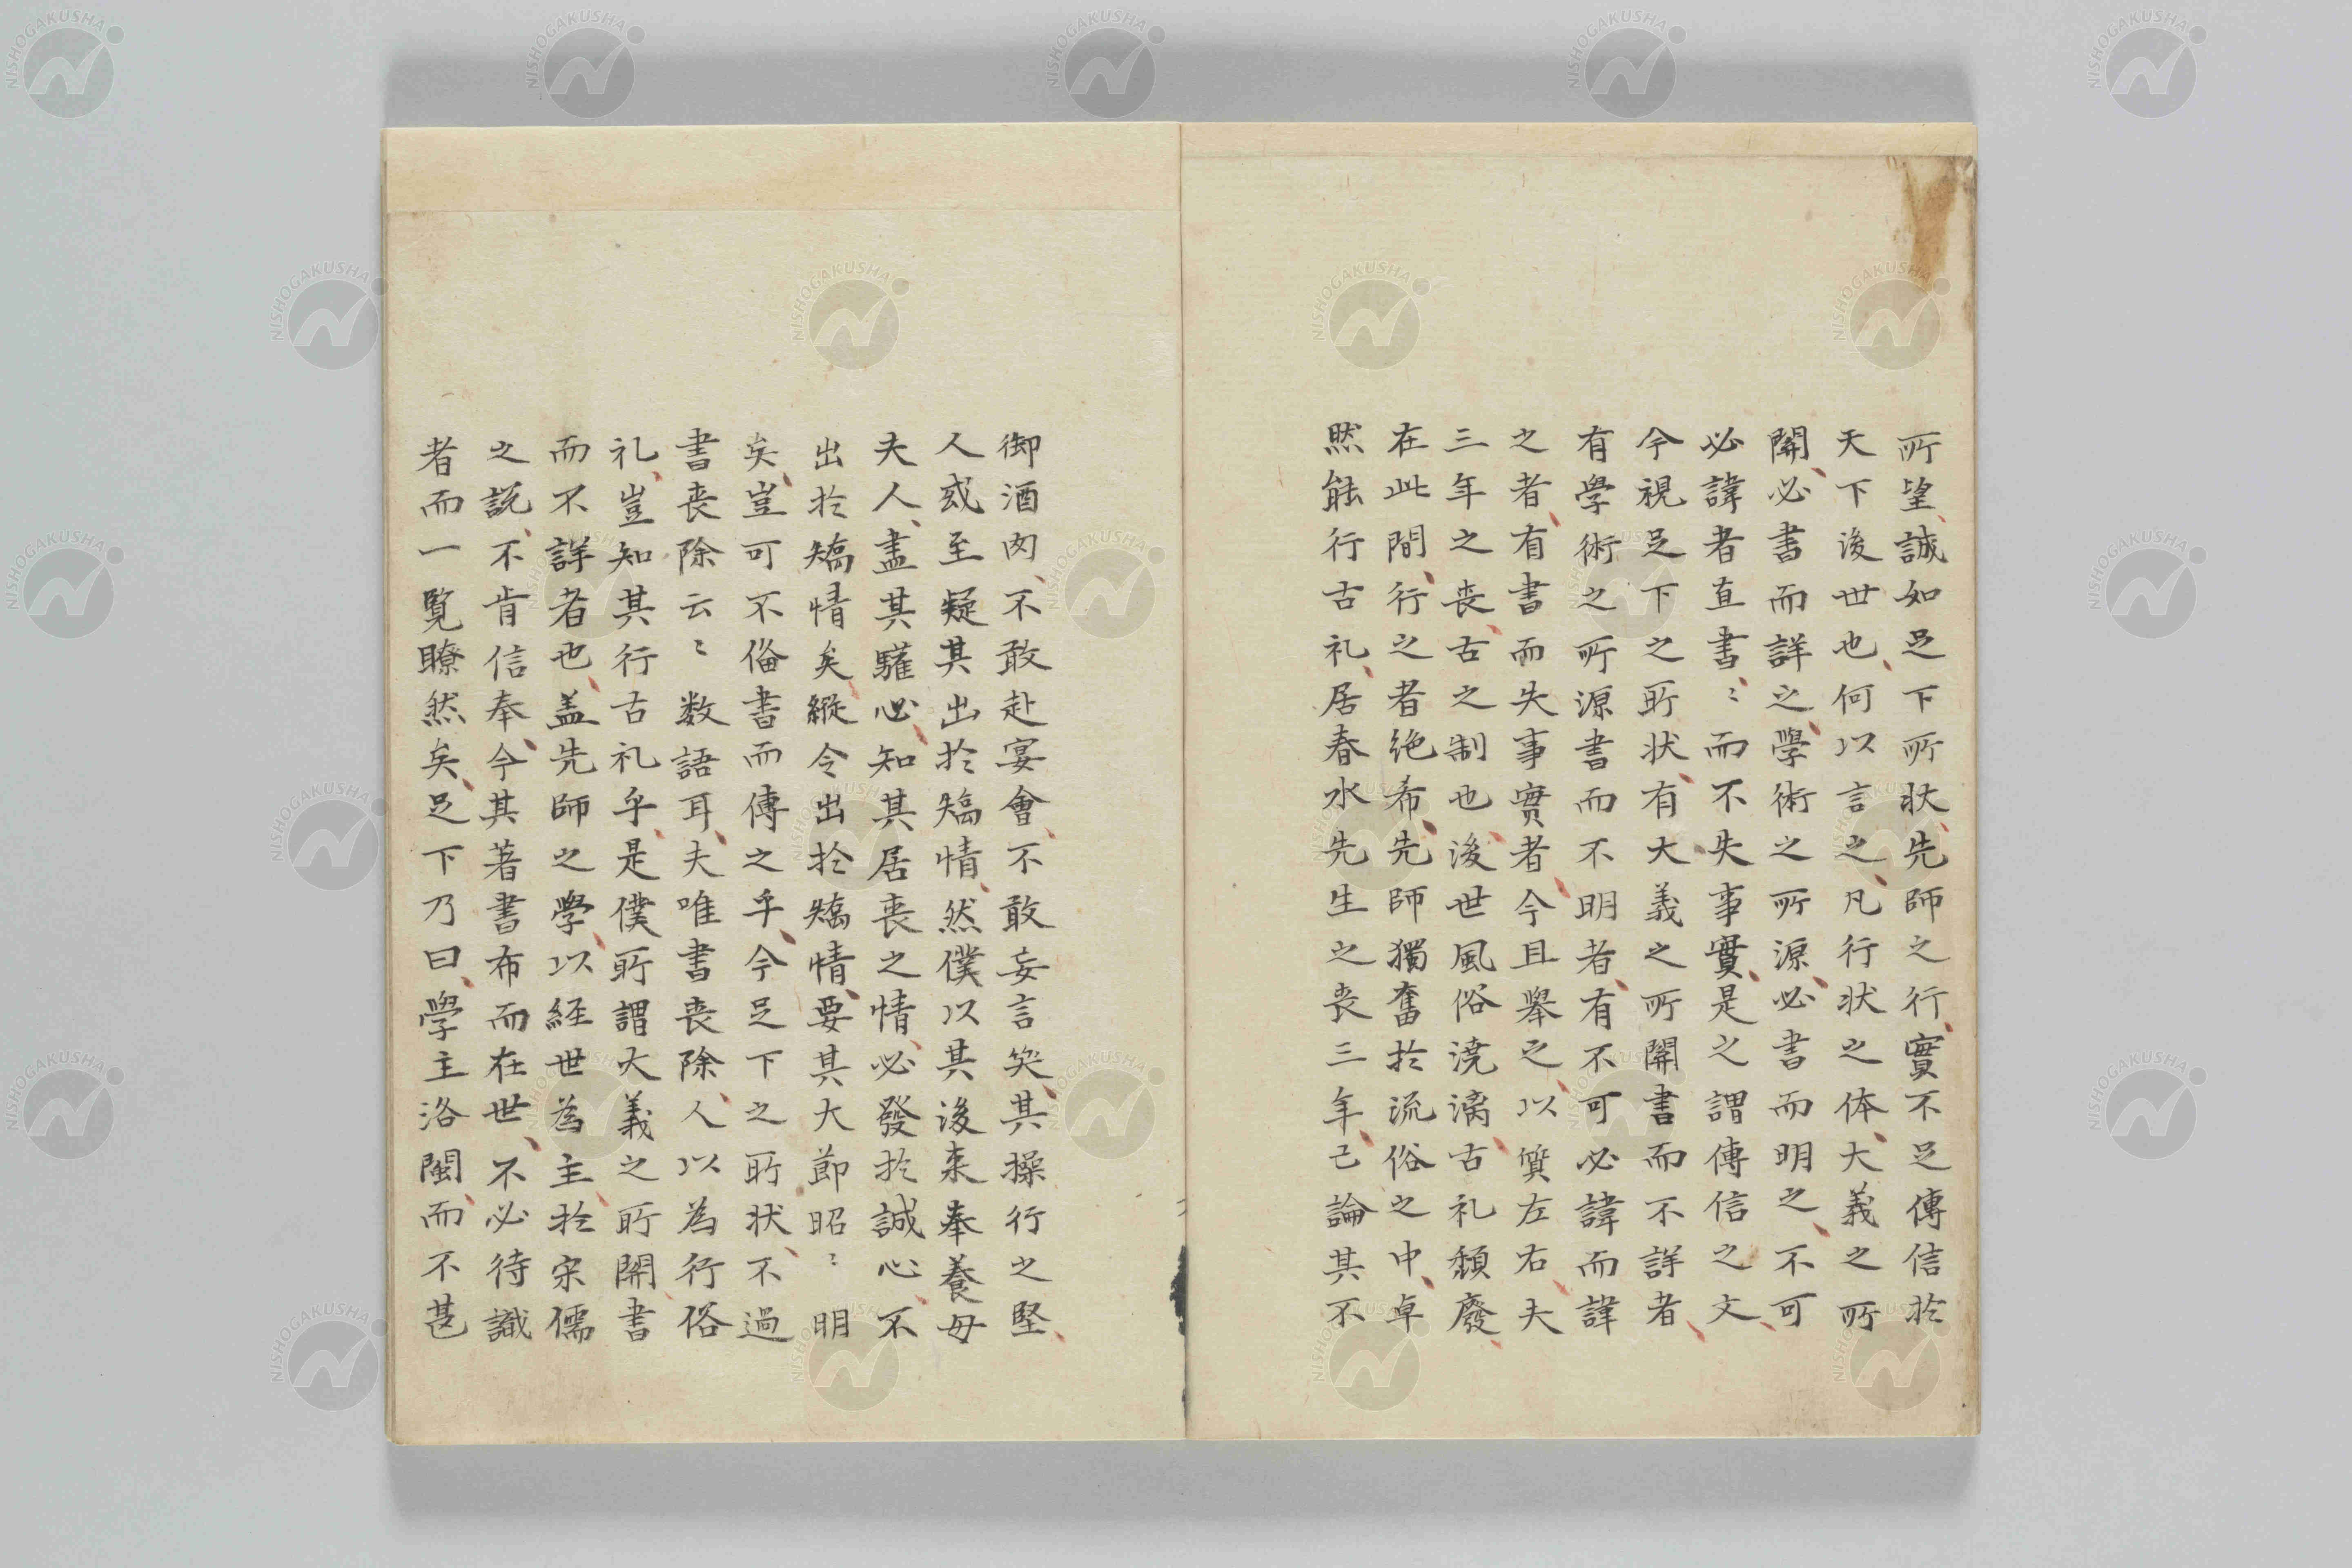 所望、誠如足下所状、先師之行實、不足傳信於
天下後世也、何以言之、凡行状之体、大義之所
関、必書而詳之、學術之所源、必書而明之、不可
必諱者直書〻而不失事實、是之謂傳信之文、
今視足下之所状、有大義之所関書而不詳者、
有學術之所源書而不明者、有不可必諱而諱
之者、有書而失事實者、今且舉之、以質左右、夫
三年之喪、古之制也、後世風俗澆漓、古礼頽廢、
在此間、行之者絶希、先師獨奮於流俗之中、卓
然能行古礼、居春水先生之喪三年、己論其不
御酒肉、不敢赴宴會、不敢妄言笑、其操行之堅、
人或至疑其出於矯情、然僕以其後来奉養母
夫人、盡其驩心、知其居喪之情、必發於誠心、不
出於矯情矣、縦令出於矯情、要其大節昭〻明
矣、豈可不備書而傳之乎、今足下之所状、不過
書喪除云〻数語耳、夫唯書喪除、人以為行俗
礼、豈知其行古礼乎、是僕所謂大義之所関書
而不詳者也、盖先師之學、以経世為主、於宋儒
之説、不肯信奉、今其著書布而在世、不必待識
者而一覧瞭然矣、足下乃曰、學主洛閩、而不甚
NISHOGAKUSHA